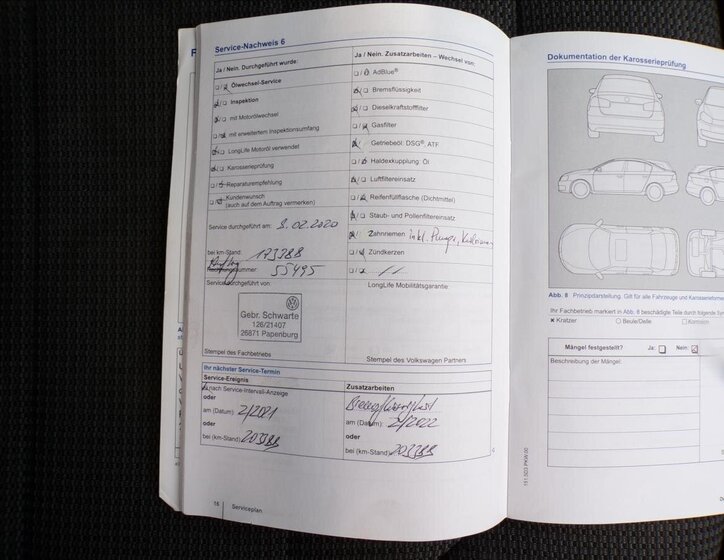 Service-Nachweis 6
Ja / Nein. Durchgeführt wurde:
Ölwechsel-Service
Inspektion
mit Motorölwechsel
mit erweitertem Inspektionsumfang
LongLife Motoröl verwendet
Karosserieprüfung
Reparaturempfehlung
Kundenwunsch
(auch auf dem Auftrag vermerken)
Service durchgeführt am: 3.02.2020
bei km-Stand: 173388
nummer 55495
Service durchgeführt von:
Gebr. Schwarte
126/21407
26871 Papenburg
Stempel des Fachbetriebs
Ja / Nein. Zusatzarbeiten – Wechsel von:
AdBlue®
Bremsflüssigkeit
Dieselkraftstofffilter
Gasfilter
Getriebeöl: DSG®, ATF
Haldexkupplung Öl
Luftfiltereinsatz
Reifenfüllflasche (Dichtmittel)
Staub- und Pollenfiltereinsatz
Zahnriemen inkl. Pumpe,
Zündkerzen
LongLife Mobilitätsgarantie:
Stempel des Volkswagen Partners
Ihr nächster Service-Termin
Service-Ereignis
nach Service-Intervall-Anzeige
oder
am (Datum): 2/2021
oder
bei (km-Stand): 203388
Zusatzarbeiten
am (Datum): 2/2022
oder
bei (km-Stand): 203388
16
Serviceplan
Dokumentation der Karosserieprüfung
Abb. 8 Prinzipdarstellung. Gilt für alle Fahrzeuge und
Ihr Fachbetrieb markiert in Abb. 8 beschädigte Teile durch folgende
Kratzer
Beule/Delle
Korrosion
Mängel festgestellt? Ja: Nein:
Beschreibung der Mängel:
151.5D3.PKW.00